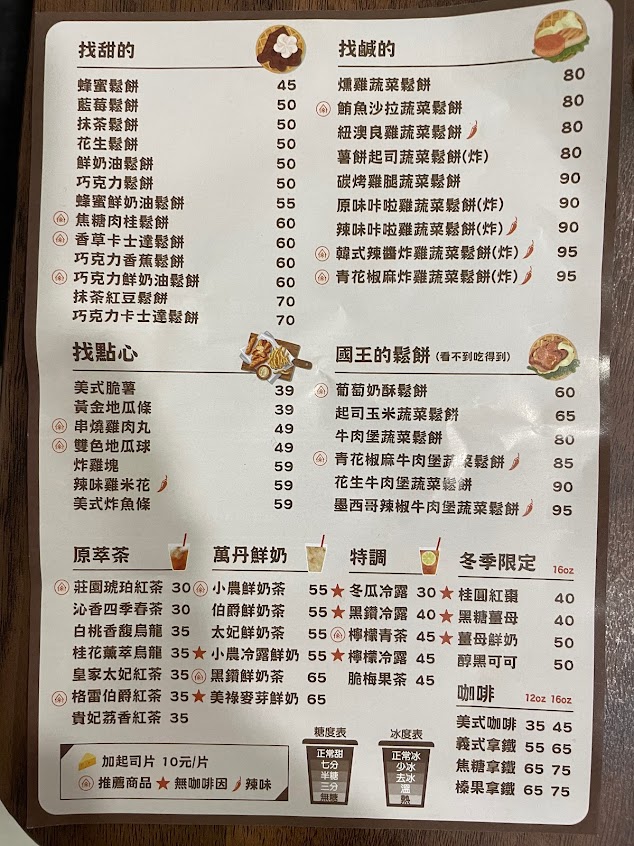 找甜的
蜂蜜鬆餅 45
藍莓鬆餅 50
抹茶鬆餅 50
花生鬆餅 50
鮮奶油鬆餅 50
巧克力鬆餅 50
蜂蜜鮮奶油鬆餅 55
焦糖肉桂鬆餅 60
香草卡士達鬆餅 60
巧克力香蕉鬆餅 60
巧克力鮮奶油鬆餅 60
抹茶紅豆鬆餅 70
巧克力卡士達鬆餅 70
找鹹的
燻雞蔬菜鬆餅 80
鮪魚沙拉蔬菜鬆餅 80
紐澳良雞蔬菜鬆餅 80
薯餅起司蔬菜鬆餅(炸) 80
碳烤雞腿蔬菜鬆餅 90
原味咔啦雞蔬菜鬆餅(炸) 90
辣味咔啦雞蔬菜鬆餅(炸) 90
韓式辣醬炸雞蔬菜鬆餅(炸) 95
青花椒麻炸雞蔬菜鬆餅(炸) 95
找點心
美式脆薯 39
黃金地瓜條 39
串燒雞肉丸 49
雙色地瓜球 49
炸雞塊 59
辣味雞米花 59
美式炸魚條 59
國王的鬆餅 (看不到吃得到)
葡萄奶酥鬆餅 60
起司玉米蔬菜鬆餅 65
牛肉堡蔬菜鬆餅 80
青花椒麻牛肉堡蔬菜鬆餅 85
花生牛肉堡蔬菜鬆餅 90
墨西哥辣椒牛肉堡蔬菜鬆餅 95
原萃茶
莊園琥珀紅茶 30
沁香四季春茶 30
白桃香馥烏龍 35
桂花薰萃烏龍 35
皇家太妃紅茶 35
格雷伯爵紅茶 35
貴妃荔香紅茶 35
萬丹鮮奶
小農鮮奶茶 55
伯爵鮮奶茶 55
太妃鮮奶茶 55
★ 小農冷露鮮奶 55
黑鑽鮮奶茶 65
★ 美祿麥芽鮮奶 65
特調
★ 冬瓜冷露 30
★ 黑鑽冷露 40
檸檬青茶 45
★ 檸檬冷露 45
脆梅果茶 45
冬季限定 16oz
★ 桂圓紅棗 40
★ 黑糖薑母 40
★ 薑母鮮奶 50
醇黑可可 50
咖啡 12oz 16oz
美式咖啡 35 45
義式拿鐵 55 65
焦糖拿鐵 65 75
榛果拿鐵 65 75
加起司片 10元/片
推薦商品 ★ 無咖啡因 辣味
糖度表
正常甜
七分
半糖
三分
無糖
冰度表
正常冰
少冰
去冰
溫
熱